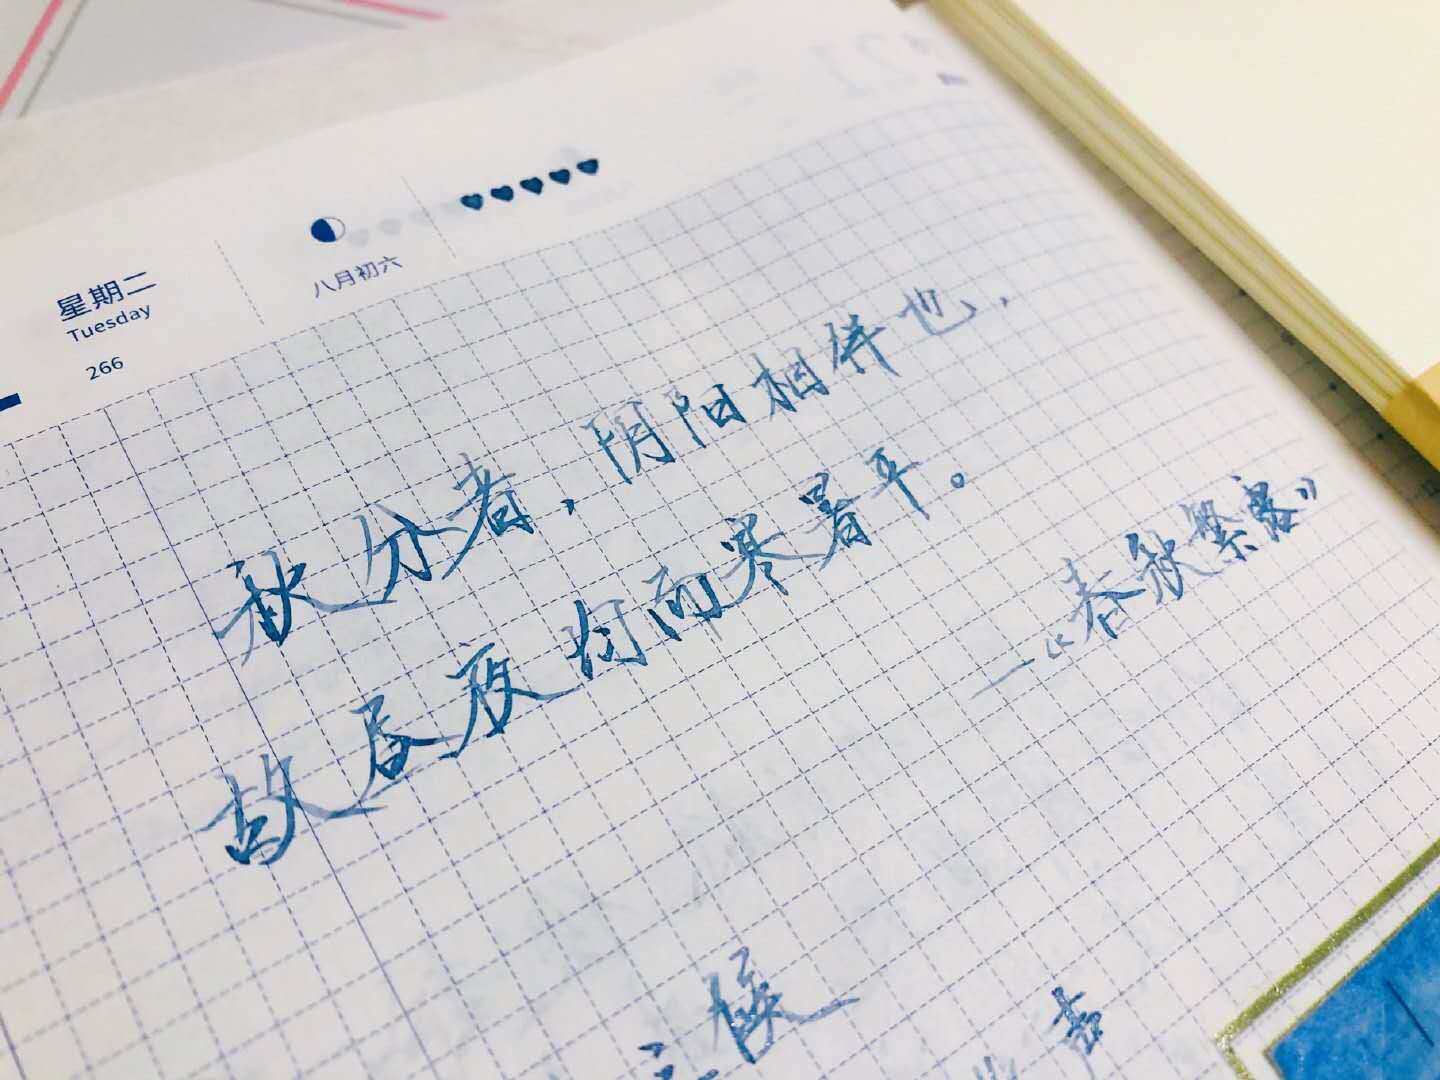 星期二
Tuesday
266
八月初六
秋分者，阴阳相伴也，
故昼夜均而寒暑平。
—《春秋繁露》
候